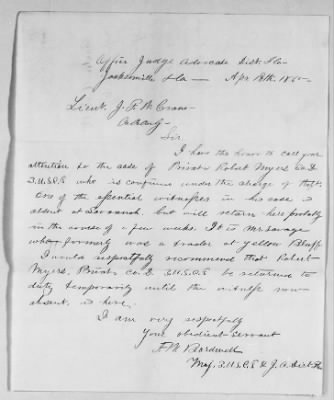 Office Judge Advocate Dist. Fla
Jacksonville Fla — Apr 18th 1865
Lieut. J. P. W.
Sir
I have the honor to call your
attention to the case of Private Robert Myers Co. D
3. U.S.C.T. who is confined under the charge of theft.
One of the essential witnesses in his case is
absent at Savannah. but will return here probably
in the course of a few weeks. It is Mr Savage
whom formerly was a trader at Yellow Bluff
I would respectfully recommend that Robert
Myers, Private Co. D 3. U.S.C.T. be returned to
duty temporarily until the witness now
absent, is here.
I am very respectfully
Your obedient servant
F. W. Bardwell
Maj. 3. U.S.C.T & J. A. Dist Fla